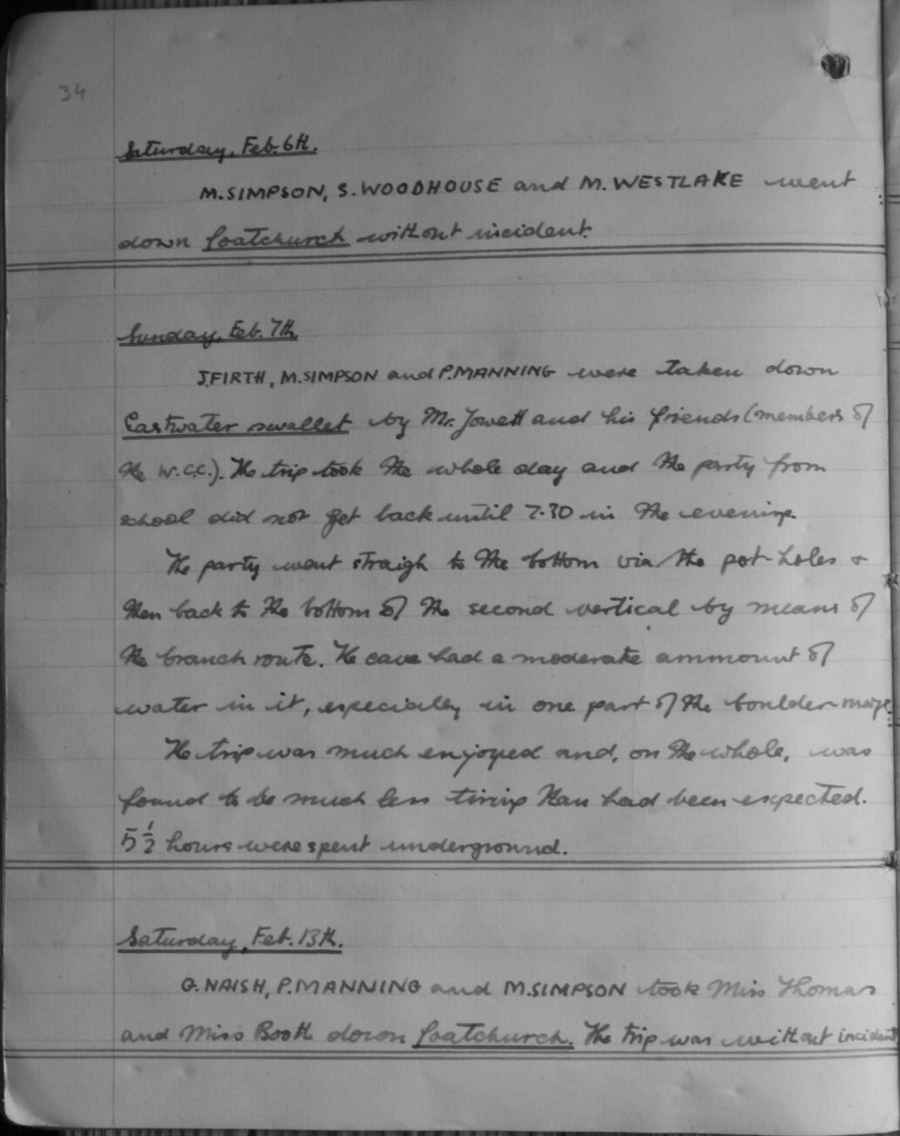 34
Saturday, Feb. 6th.
M. SIMPSON, S. WOODHOUSE and M. WESTLAKE went
down Goatchurch without incident.
Sunday, Feb. 7th.
J. FIRTH, M. SIMPSON and P. MANNING were taken down
Eastwater swallet by Mr. Jowett and his friends (members of
the W.C.C.). The trip took the whole day and the party from
school did not get back until 7.30 in the evening.
The party went straigh to the bottom via the pot-holes &
then back to the bottom of the second vertical by means of
the branch route. The cave had a moderate ammount of
water in it, especially in one part of the boulder maze.
The trip was much enjoyed and, on the whole, was
found to be much less tiring than had been expected.
5½ hours were spent underground.
Saturday, Feb. 13th.
G. NAISH, P. MANNING and M. SIMPSON took Miss Thomas
and Miss Booth down Goatchurch. The trip was without incident